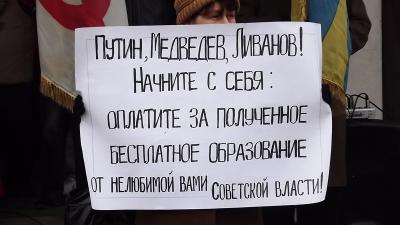 Путин, Медведев, Ливанов!
Начните с себя:
оплатите за полученное
бесплатное образование
от нелюбимой вами Советской власти!